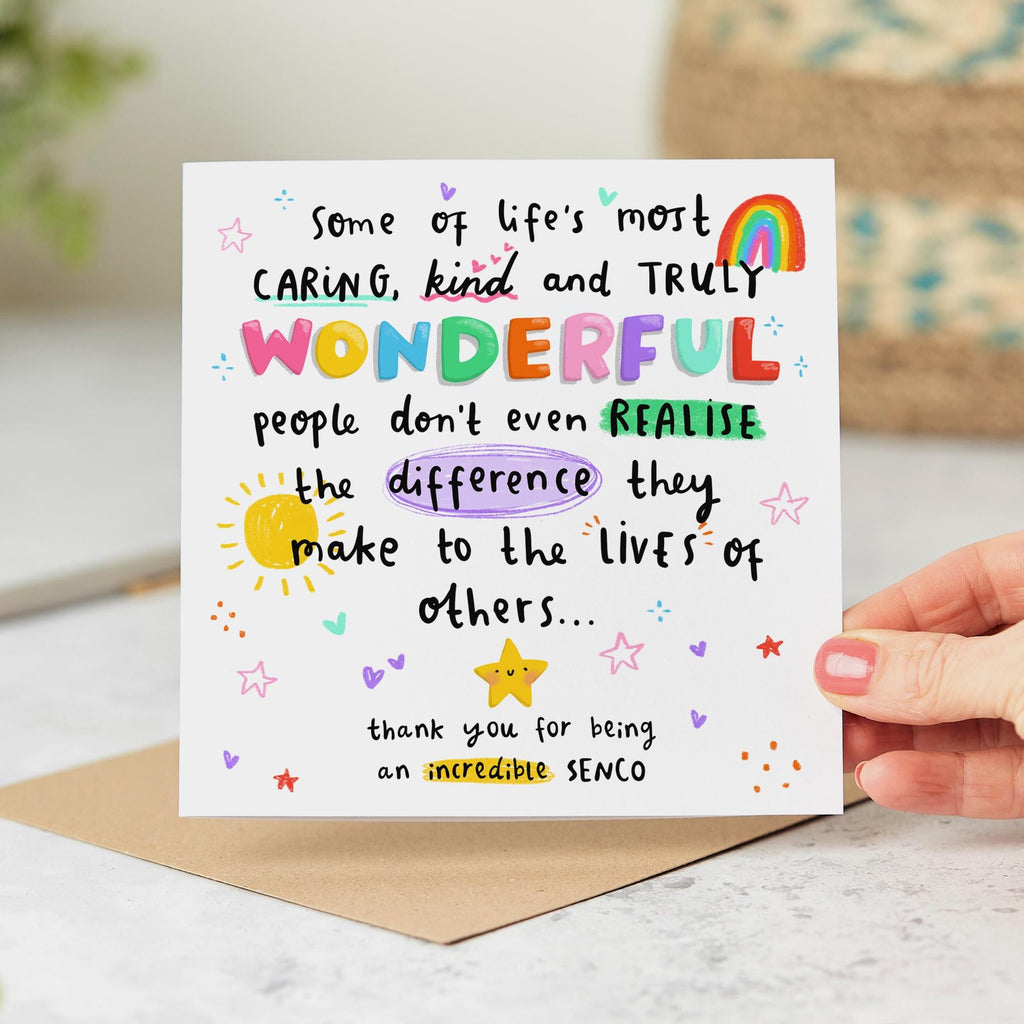 some of life's most
CARING, kind and TRULY
WONDERFUL
people don't even REALISE
the difference they
make to the LIVES of
others...
thank you for being
an incredible SENCO